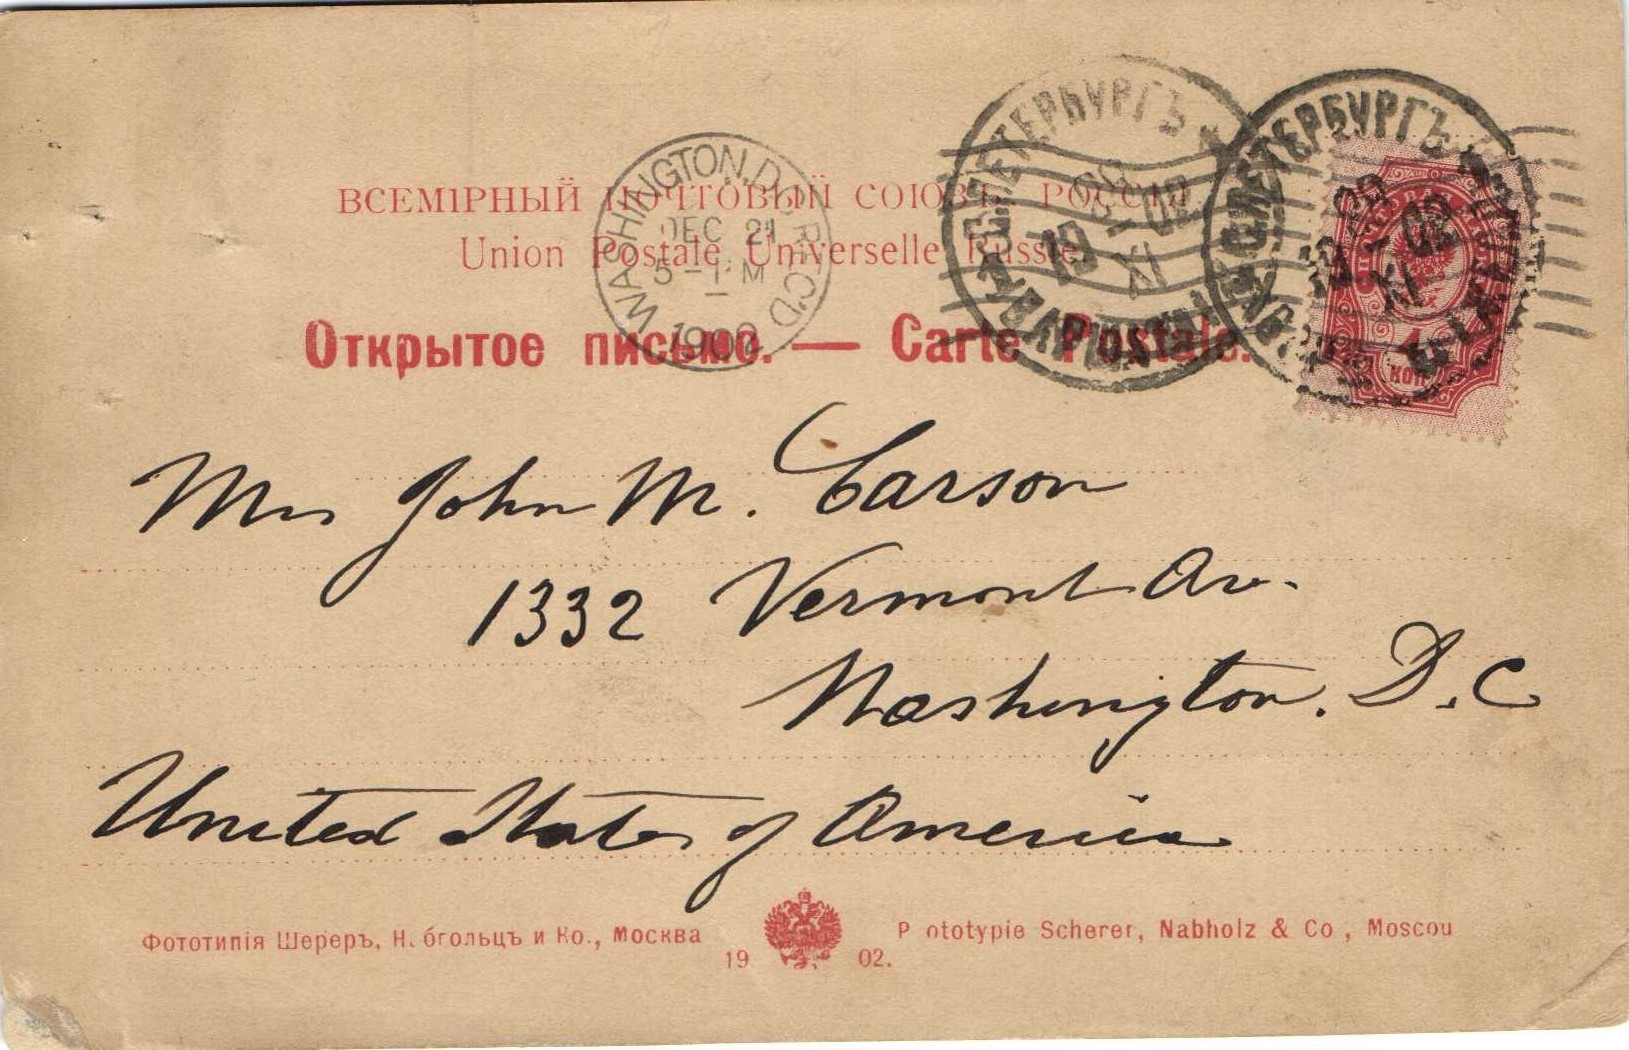 ВСЕМІРНЫЙ ПОЧТОВЫЙ СОЮЗЪ. РОССІЯ
Union Postale Universelle Russie
Открытое письмо. — Carte Postale.
WASHINGTON, D.C. REC'D
DEC 21
5 - M
1902
С.ПЕТЕРБУРГЪ
С.ПЕТЕРБУРГЪ
4
КОП
Mrs John M. Carson
1332 Vermont Av.
Washington. D.C
United States of America
Фототипія Шереръ, Набгольцъ и Ко., Москва
Phototypie Scherer, Nabholz & Co, Moscou
19 02.